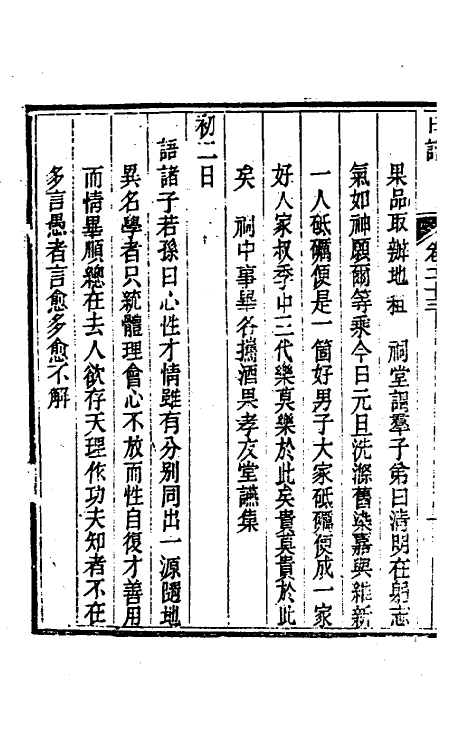 日譜 卷二十三
果品取辦地租 祠堂謂羣子弟曰清明在躬志
氣如神願爾等乘今日元旦洗滌舊染嘉與維新
一人砥礪便是一箇好男子大家砥礪便成一家
好人家叔季中三代樂莫樂於此矣貴莫貴於此
矣 祠中事畢各攜酒果孝友堂讌集
初二日
語諸子若孫曰心性才情雖有分別同出一源隨地
異名學者只統體理會心不放而性自復才善用
而情畢順總在去人欲存天理作功夫知者不在
多言愚者言愈多愈不解